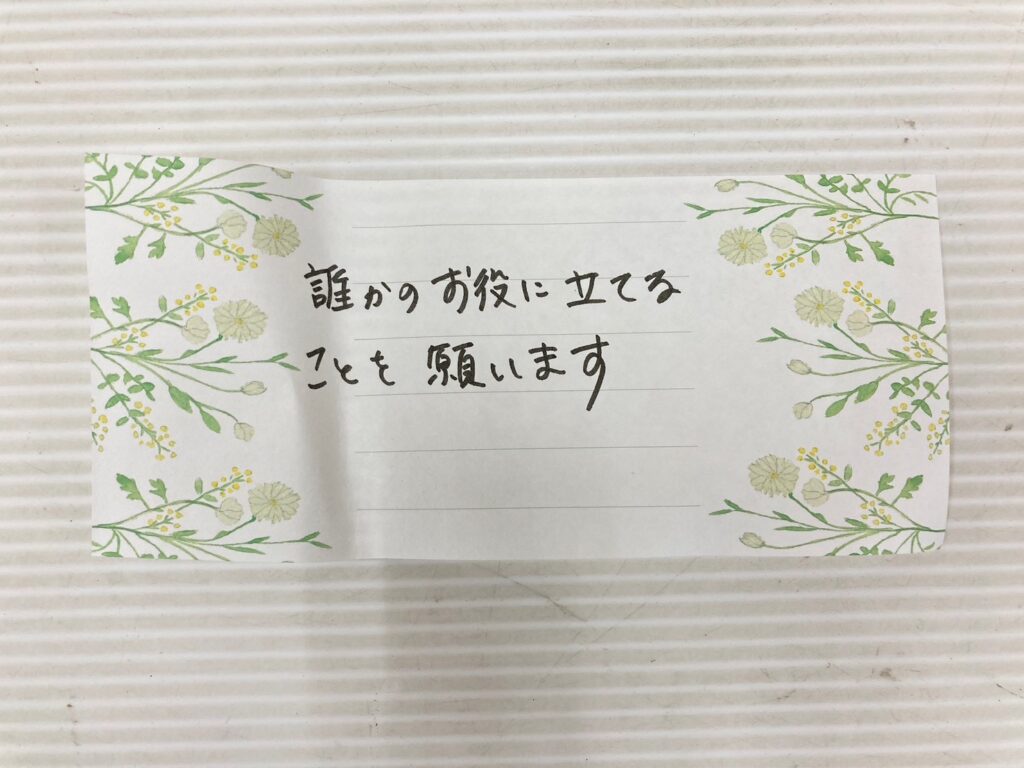 誰かのお役に立てる
ことを願います